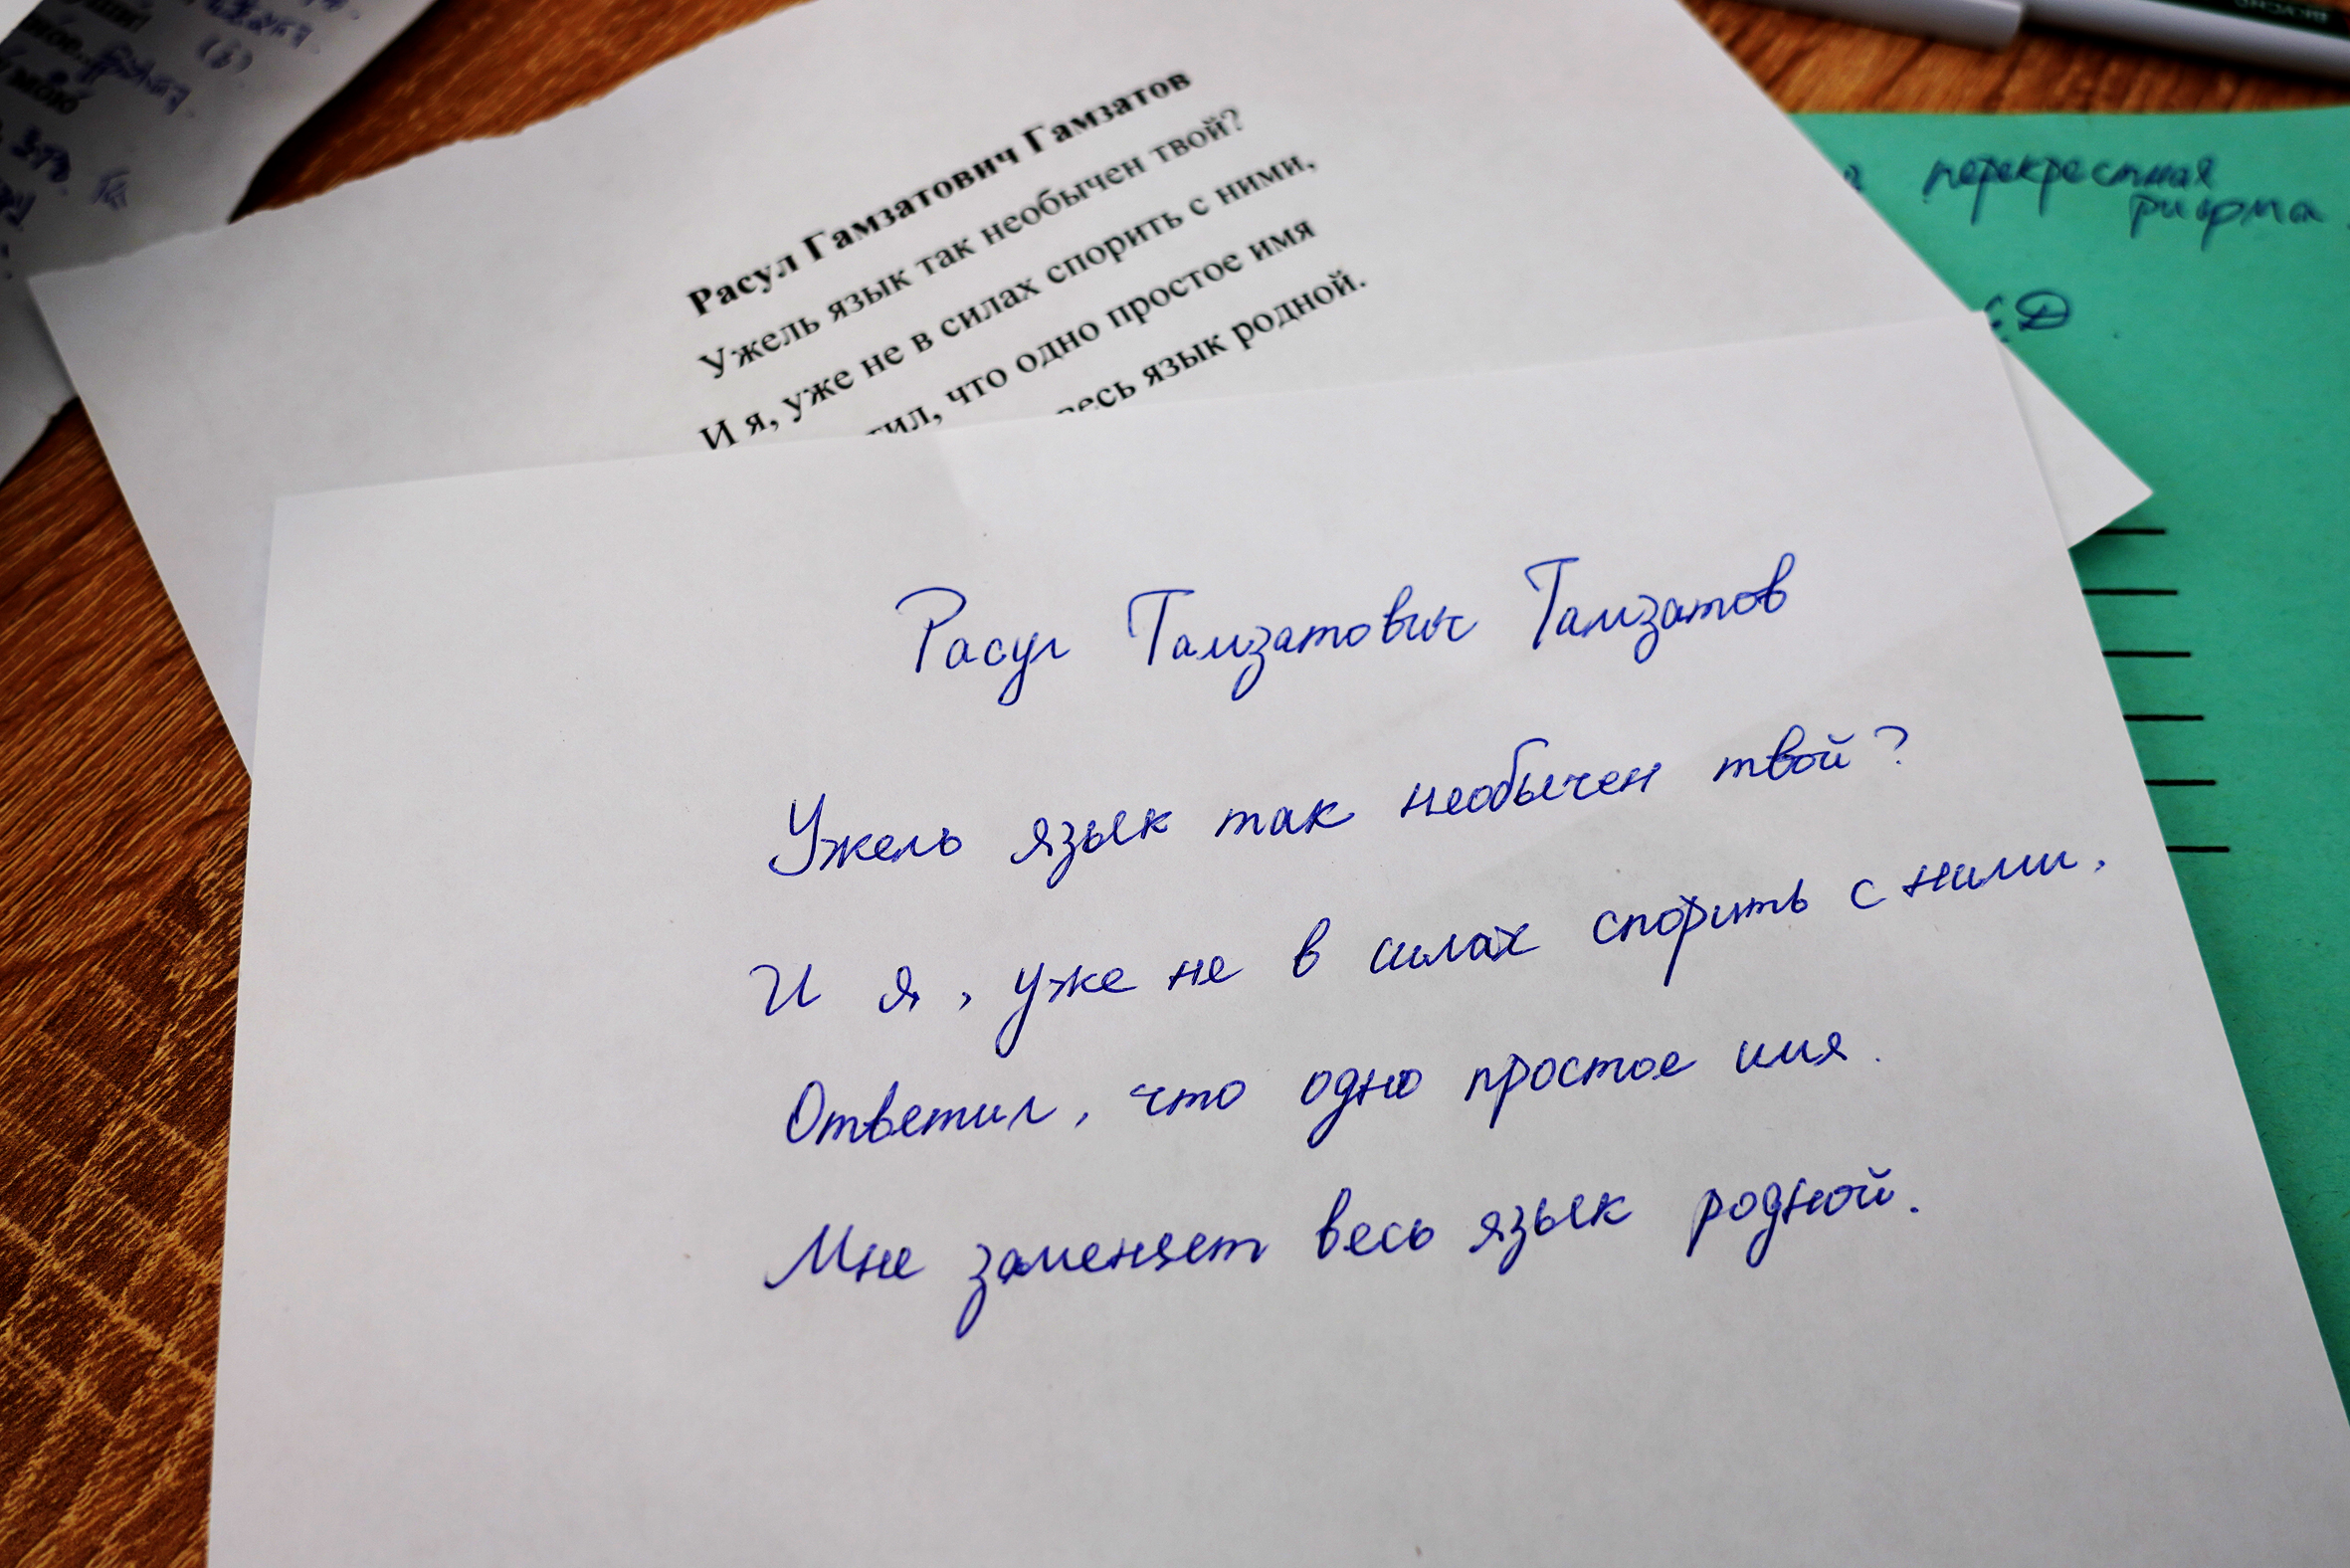 Расул Гамзатович Гамзатов
Ужель язык так необычен твой?
И я, уже не в силах спорить с ними,
что одно простое имя
весь язык родной.
перекрестная
рифма
Расул Гамзатович Гамзатов
Ужель язык так необычен твой?
И я, уже не в силах спорить с ними,
Ответил, что одно простое имя.
Мне заменяет весь язык родной.